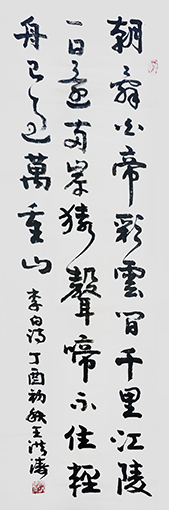 朝辭白帝彩雲間千里江陵
一日還兩岸猿聲啼不住輕
舟已過萬重山 李白詩 丁酉初秋王洪濤